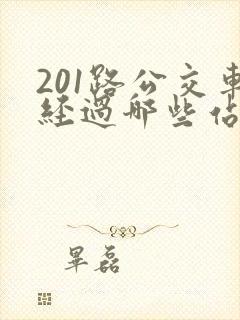 201路公交車
經過哪些站
畢磊